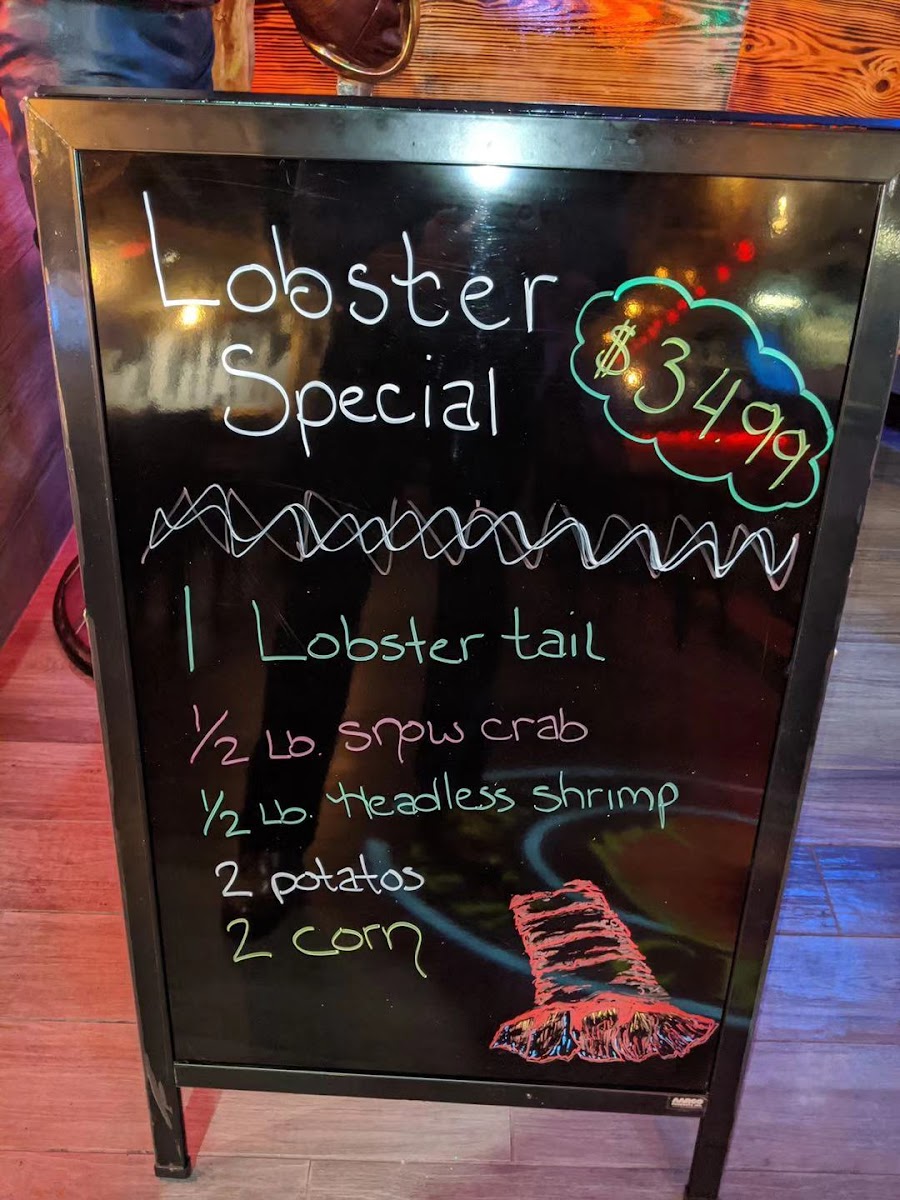 Lobster
Special
$34.99
1 Lobster tail
1/2 Lb. snow crab
1/2 Lb. Headless shrimp
2 potatos
2 corn
AARCO